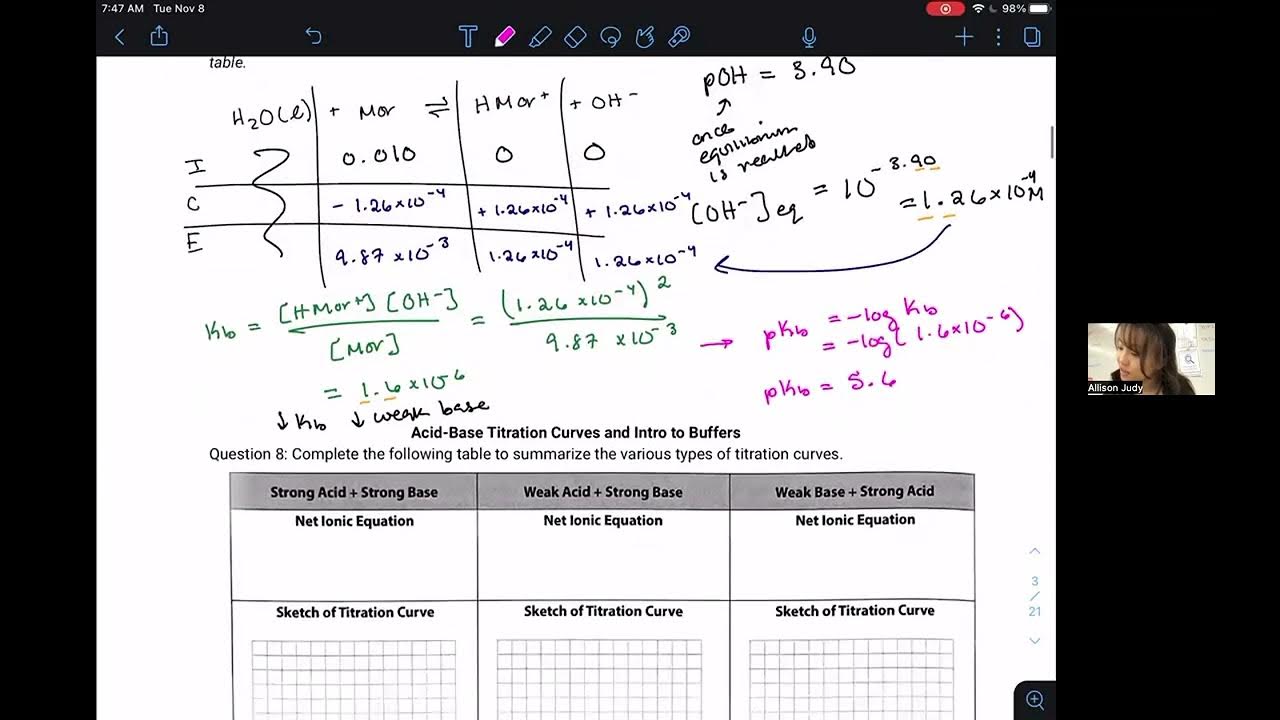 7:47 AM Tue Nov 8
98%
table.
pOH = 3.90
H₂O(l) + Mor ⇌ HMor⁺ + OH⁻
once equilibrium is reached
I 0.010 0 0
[OH⁻]eq = 10⁻³·⁹⁰ = 1.26 x 10⁻⁴ M
C - 1.26x10⁻⁴ + 1.26x10⁻⁴ + 1.26x10⁻⁴
E 9.87 x10⁻³ 1.26x10⁻⁴ 1.26x10⁻⁴
Kb = [HMor⁺] [OH⁻] / [Mor] = (1.26 x10⁻⁴)² / 9.87 x10⁻³
→ pKb = -log Kb
= -log( 1.6x10⁻⁶)
pKb = 5.6
= 1.6x10⁻⁶
↓ Kb ↓ weak base
Allison Judy
Acid-Base Titration Curves and Intro to Buffers
Question 8: Complete the following table to summarize the various types of titration curves.
Strong Acid + Strong Base Weak Acid + Strong Base Weak Base + Strong Acid
Net Ionic Equation Net Ionic Equation Net Ionic Equation
Sketch of Titration Curve Sketch of Titration Curve Sketch of Titration Curve
3
/
21